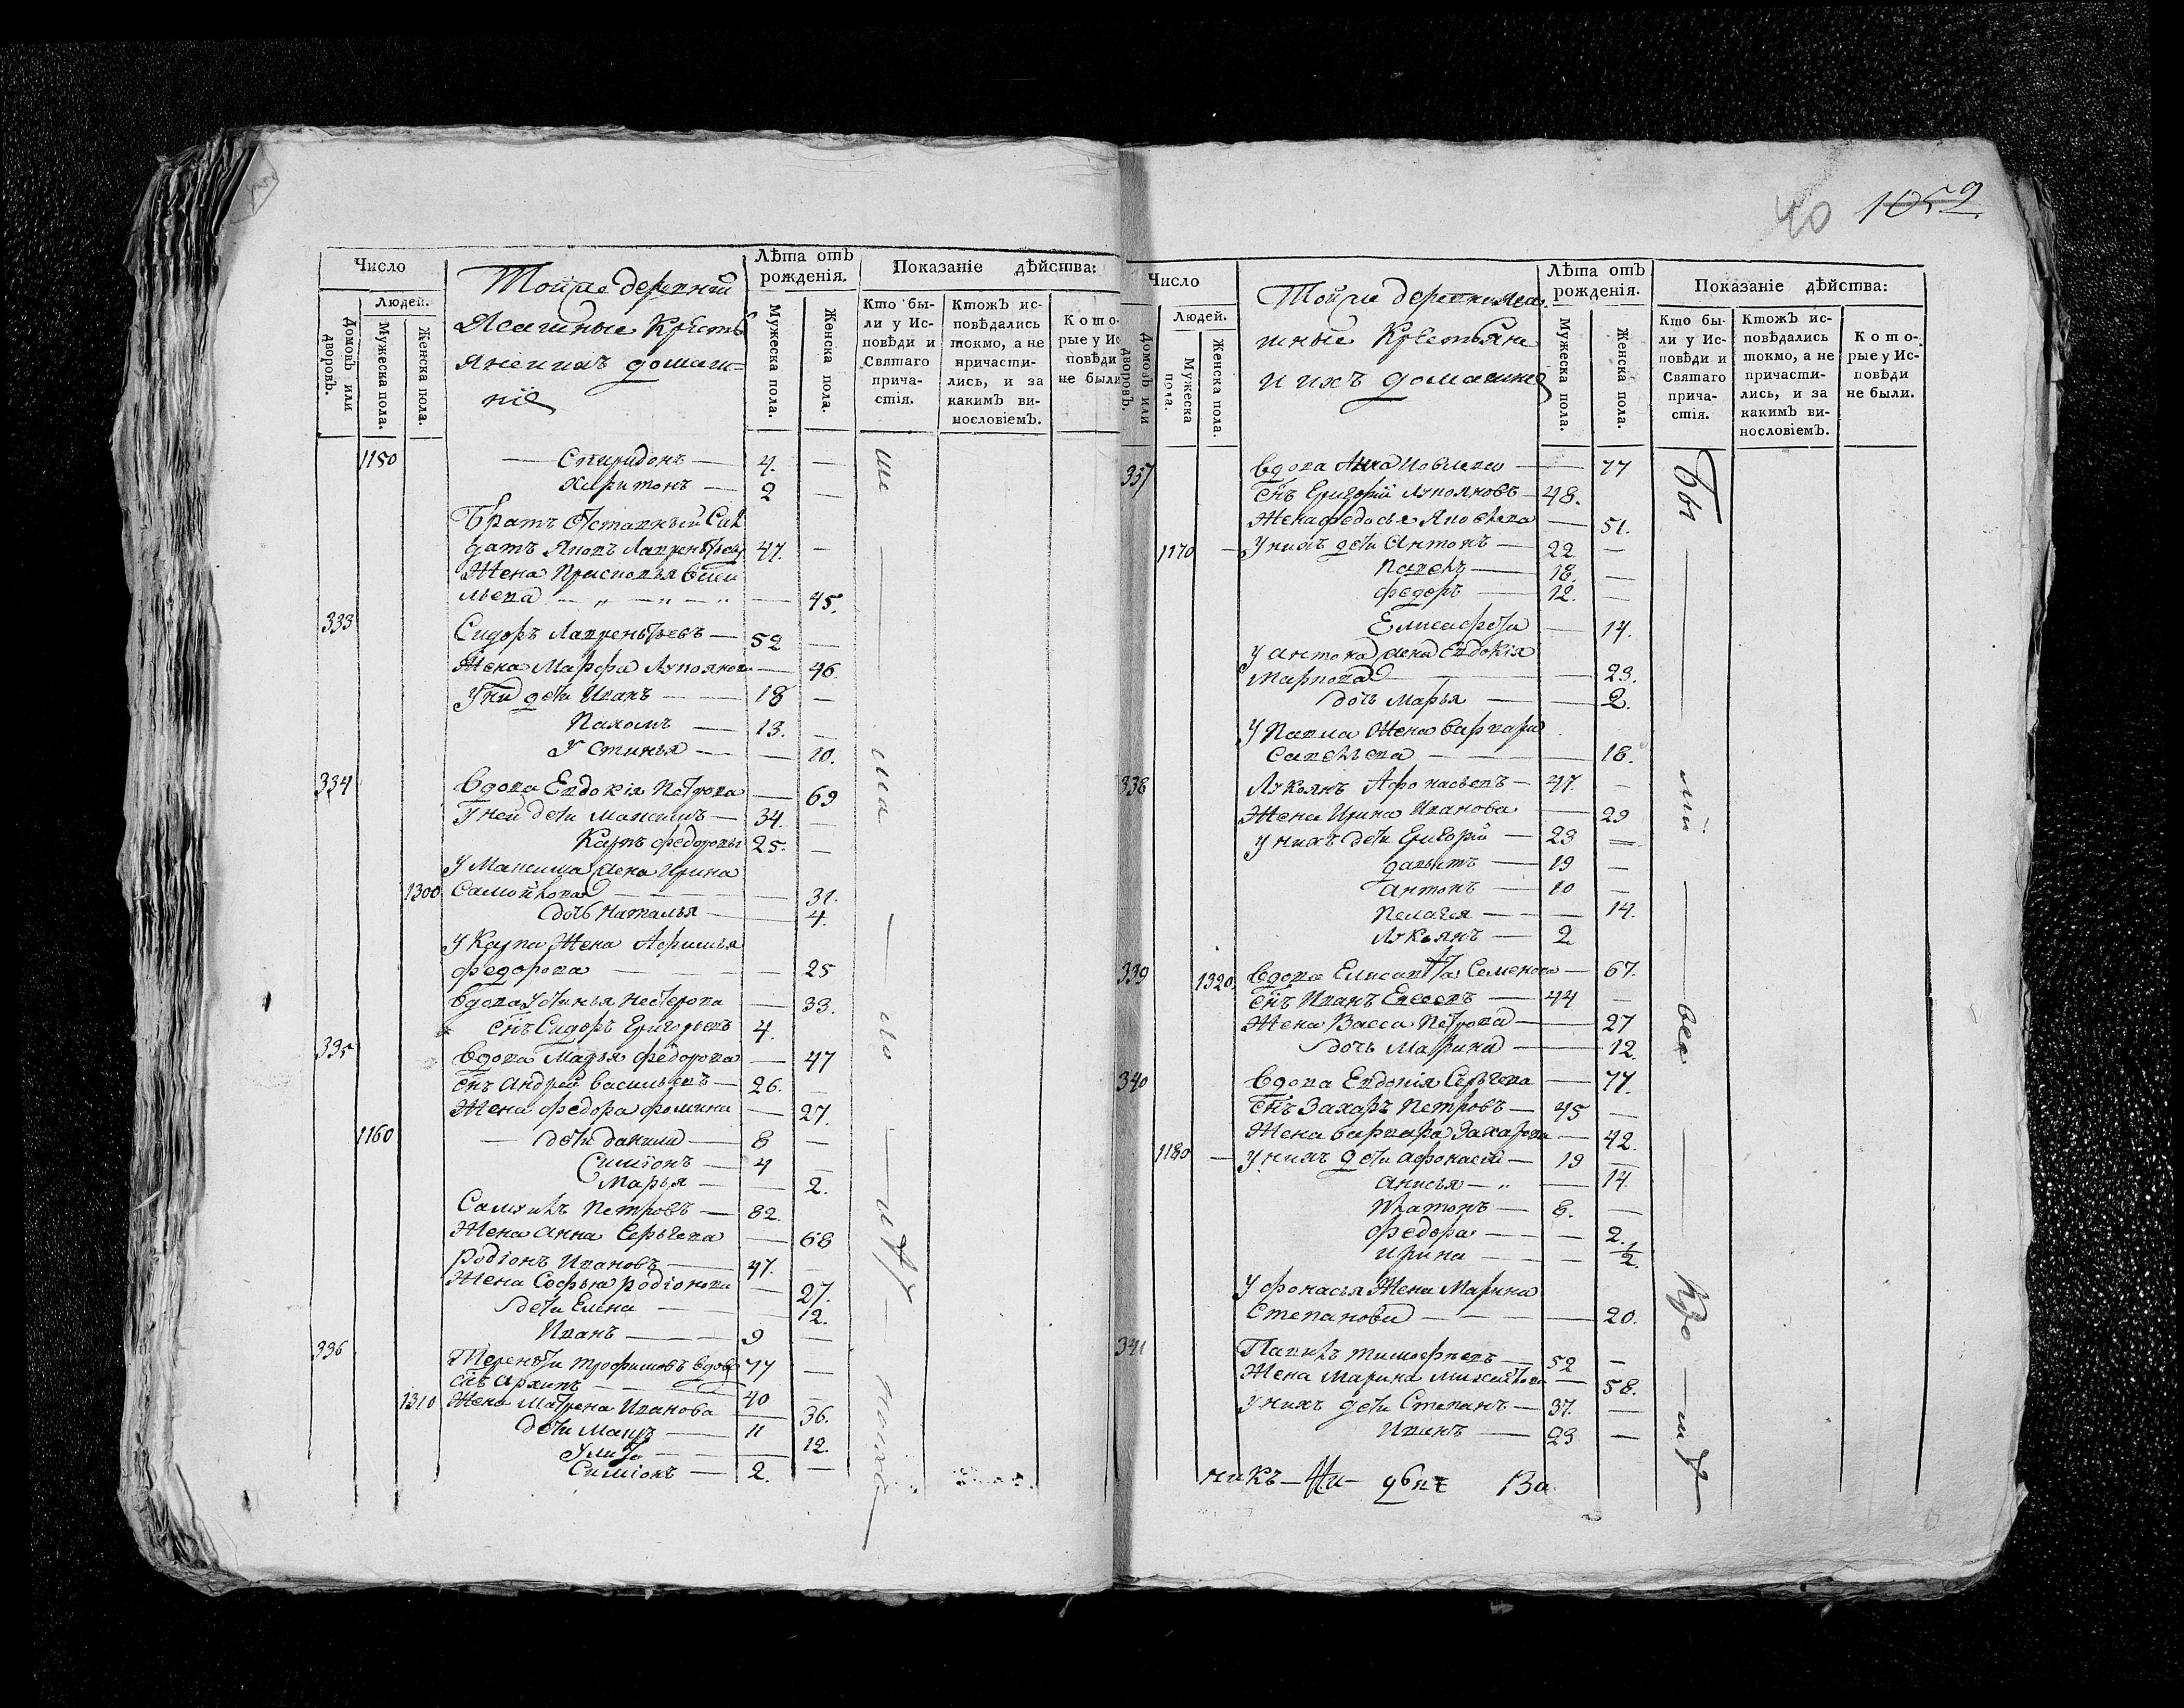 40 1052
Число
Людей.
Домовъ или дворовъ.
Мужеска пола.
Женска пола.
Тойже деревни
Ясашные Кресть
яне и ихъ домаш=
нїе
Лѣта отъ рожденія.
Мужеска пола.
Женска пола.
Показаніе дѣйства:
Кто бы-
ли у Ис-
повѣди и
Святаго
прича-
стія.
Ктожъ ис-
повѣдались
токмо, а не
причасти-
лись, и за
какимъ ви-
нословіемъ.
Кото-
рые у Ис
повѣди
не были
1150 — Спиридонъ — 4. —
Харитонъ — 2 —
Братъ Отставный Сал
датъ Яковъ Лаврентьевъ 47. —
Жена Прасковья Васи
льева — „ — „ — „ — 45.
333 Сидоръ Лаврентьевъ — 52 —
Жена Марфа Лукоянова — 46.
У ни дети Иванъ — 18 —
Пахомъ — 13. —
Устинья — — 10.
334 Вдова Евдокія Петрова — 69
У ней дети Максимъ — 34. —
Карпъ Федоровы 25. —
У Максима жена Ирина
1300 Самойлова — — 31.
дочь Наталья — — 4.
У Карпа Жена Афимья
Федорова — — 25
Вдова Устинья Нестерова — 33.
Снъ Сидоръ Григорьевъ 4.
335 Вдова Марья Федорова — 47
Снъ Андрей Васильевъ — 26. —
Жена Федора Фомина — 27.
1160 — дети Данила — 8 —
Симїонъ — 4 —
Марья — — 2.
Самуилъ Петровъ — 82.
Жена Анна Сергеева — 68
Родїонъ Ивановъ — 47. —
Жена Софья Родїонова — 27.
дети Елена — — 12.
Иванъ — 9 —
336 Терентїи Трофимовъ вдовъ 77 —
Снъ Архипъ — 40 —
1310 Жена Матрена Иванова — 36.
дети — 11
Улита — — 12.
Симїонъ — 2. —
ше — ма — ло — лѣт
Число
Людей.
Домовъ или дворовъ.
Мужеска пола.
Женска пола.
Тойже деревни Яса
шные Крестьяне
и ихъ домашнїе
Лѣта отъ рожденія.
Мужеска пола.
Женска пола.
Показаніе дѣйства:
Кто бы-
ли у Ис-
повѣди и
Святаго
прича-
стія.
Ктожъ ис-
повѣдались
токмо, а не
причасти-
лись, и за
какимъ ви-
нословіемъ.
Кото-
рые у Ис-
повѣди
не были.
337 Вдова Анна — — 77
Снъ Григорїй Лукояновъ — 48.
Жена Федосья Яковлева — 51.
1170 — У нихъ дети Антонъ — 22 —
Павелъ — 18. —
Федоръ — 12. —
Елисафета — 14.
У Антона жена Евдокїя
Маркова — — 23.
дочь Марья — — 2.
У Павла Жена Варвара
Савельева — — 18.
338 Лукьянъ Афонасьевъ — 47. —
Жена Ирина Иванова — 29
У нихъ дети Григорїй — 23 —
Давыдъ — 19 —
Антонъ — 10 —
Пелагея — — 14.
Лукьянъ — 2
339 1320. Вдова Елисавета Семенова — 67.
Снъ Иванъ Евсеевъ — 44 —
Жена Васса Петрова — 27
дочь Марина — — 12.
340 Вдова Евдокїя Сергеева — 77.
Снъ Захаръ Петровъ — 45 —
Жена Варвара Захарова — 42.
1180 — У нихъ дети Афонасїй — 19 —
Анисья — „ — 14
Платонъ — 8. —
Федора — — 2.
Ирина — — 1/2.
У Афонасья Жена Марина
Степанова — — 20.
341 Павилъ Тимофеевъ — 52 —
Жена Марина Михайлова — 58.
У нихъ дети Степанъ — 37. —
Иванъ — 23 —
Бы — ли — все
никъ — Ни